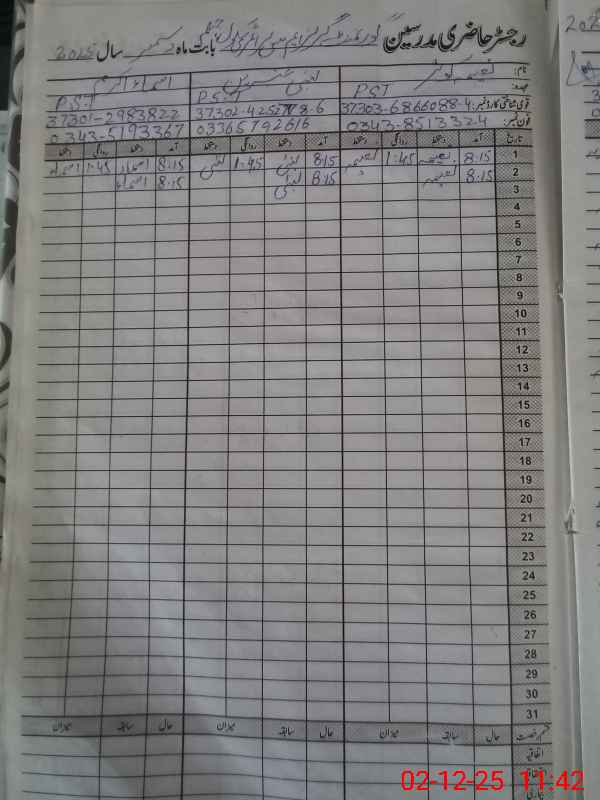 رجسٹر حاضری مدرسین گورنمنٹ گرلز پرائمری سکول بابت ماہ دسمبر سال 2025
نام: نعیمہ کوثر لبنیٰ اسماء اکرم
عہدہ: PST PST PST
قومی شناختی کارڈ نمبر: 37303-6866088-4 37301-2983822
فون نمبر: 0343-8513324 03365792616 0343-5193367
تاریخ آمد دستخط روانگی دستخط آمد دستخط روانگی دستخط آمد دستخط روانگی دستخط
1 8:15 نعیمہ 1:45 نعیمہ 8:15 لبنیٰ 1:45 لبنیٰ 8:15 اسماء 1:45 اسماء
2 8:15 نعیمہ 8:15 لبنیٰ 8:15 اسماء
3
4
5
6
7
8
9
10
11
12
13
14
15
16
17
18
19
20
21
22
23
24
25
26
27
28
29
30
31
قسم رخصت حال سابقہ میزان حال سابقہ میزان حال سابقہ میزان
اتفاقیہ
بیماری
02-12-25 11:42